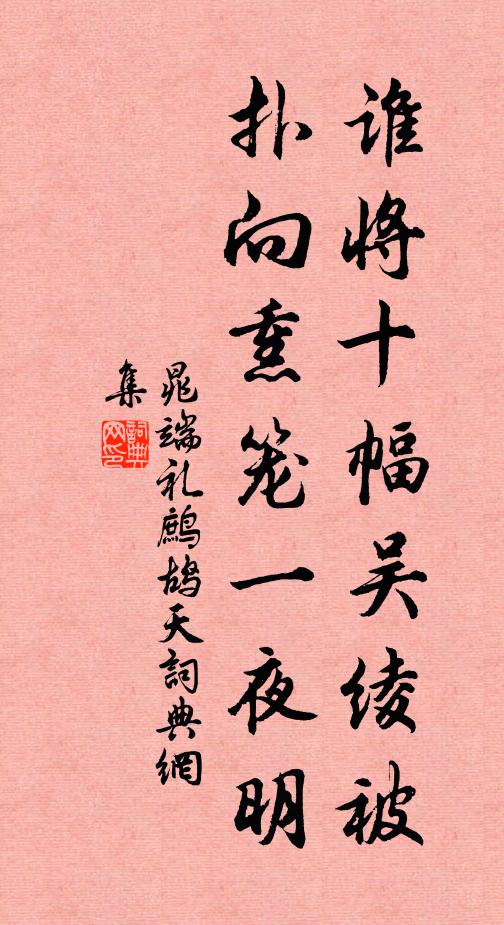 谁将十幅吴绫被
扑向熏笼一夜明
晁端礼鹧鸪天詞典網
集
詞典
网印